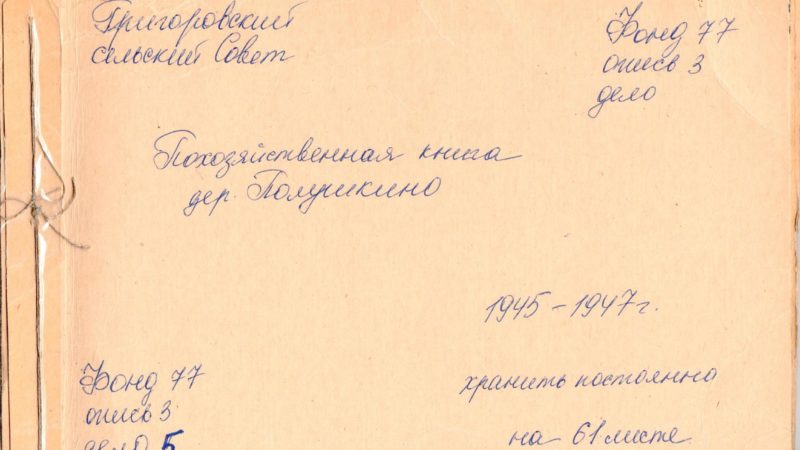 Григоровский
сельский Совет
Фонд 77
опись 3
дело
Похозяйственная книга
дер. Полушкино
1945-1947г.
хранить постоянно
на 61 листе
Фонд 77
опись 3
дело 5